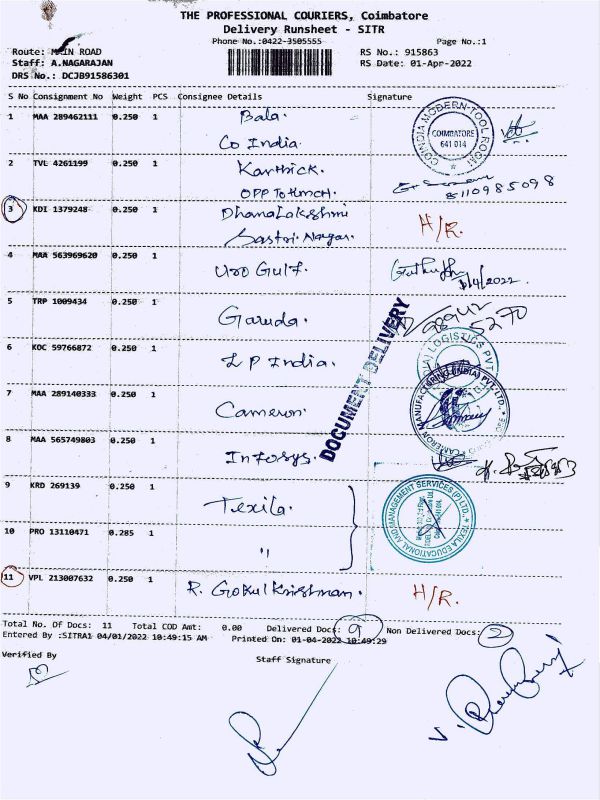 THE PROFESSIONAL COURIERS, Coimbatore
Delivery Runsheet - SITR
Phone No.:0422-3505555 Page No.:1
Route: MAIN ROAD RS No.: 915863
Staff: A.NAGARAJAN RS Date: 01-Apr-2022
DRS No.: DCJB91586301
S No Consignment No Weight PCS Consignee Details Signature
1 MAA 289462111 0.250 1 Bala.
Co India.
COINDIA MODERN TOOL ROOM
COIMBATORE
641 014
2 TVL 4261199 0.250 1 Karthick.
OPP To KMCH. 8110985098
3 KDI 1379248 0.250 1 Dhanalakshmi H/R.
Sastri Nagar.
4 MAA 563969620 0.250 1 Uro Gulf. 1/4/2022
5 TRP 1009434 0.250 1 Garuda. 28942
5270
DOCUMENT DELIVERY
6 KOC 59766872 0.250 1 L P India.
LOGISTICS PVT
7 MAA 289140333 0.250 1 Cameron.
CAMERON MANUFACTURING (INDIA) PVT. LTD.
8 MAA 565749803 0.250 1 Infosys.
9 KRD 269139 0.250 1 Texila.
TEXILA EDUCATIONAL AND MANAGEMENT SERVICES (P) LTD.
10 PRO 13110471 0.285 1 "
11 VPL 213007632 0.250 1 R. Gokul Krishnan. H/R.
Total No. Of Docs: 11 Total COD Amt: 0.00 Delivered Docs: 9 Non Delivered Docs: 2
Entered By :SITRA1 04/01/2022 10:49:15 AM Printed On: 01-04-2022 10:49:29
Verified By Staff Signature